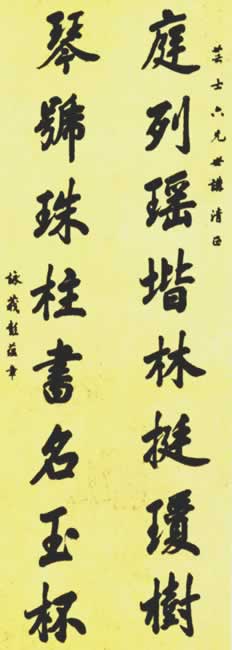 芸士六兄世講清正
庭列瑶堦林挺瓊樹
琴號珠柱書名玉杯
詠莪彭蘊章